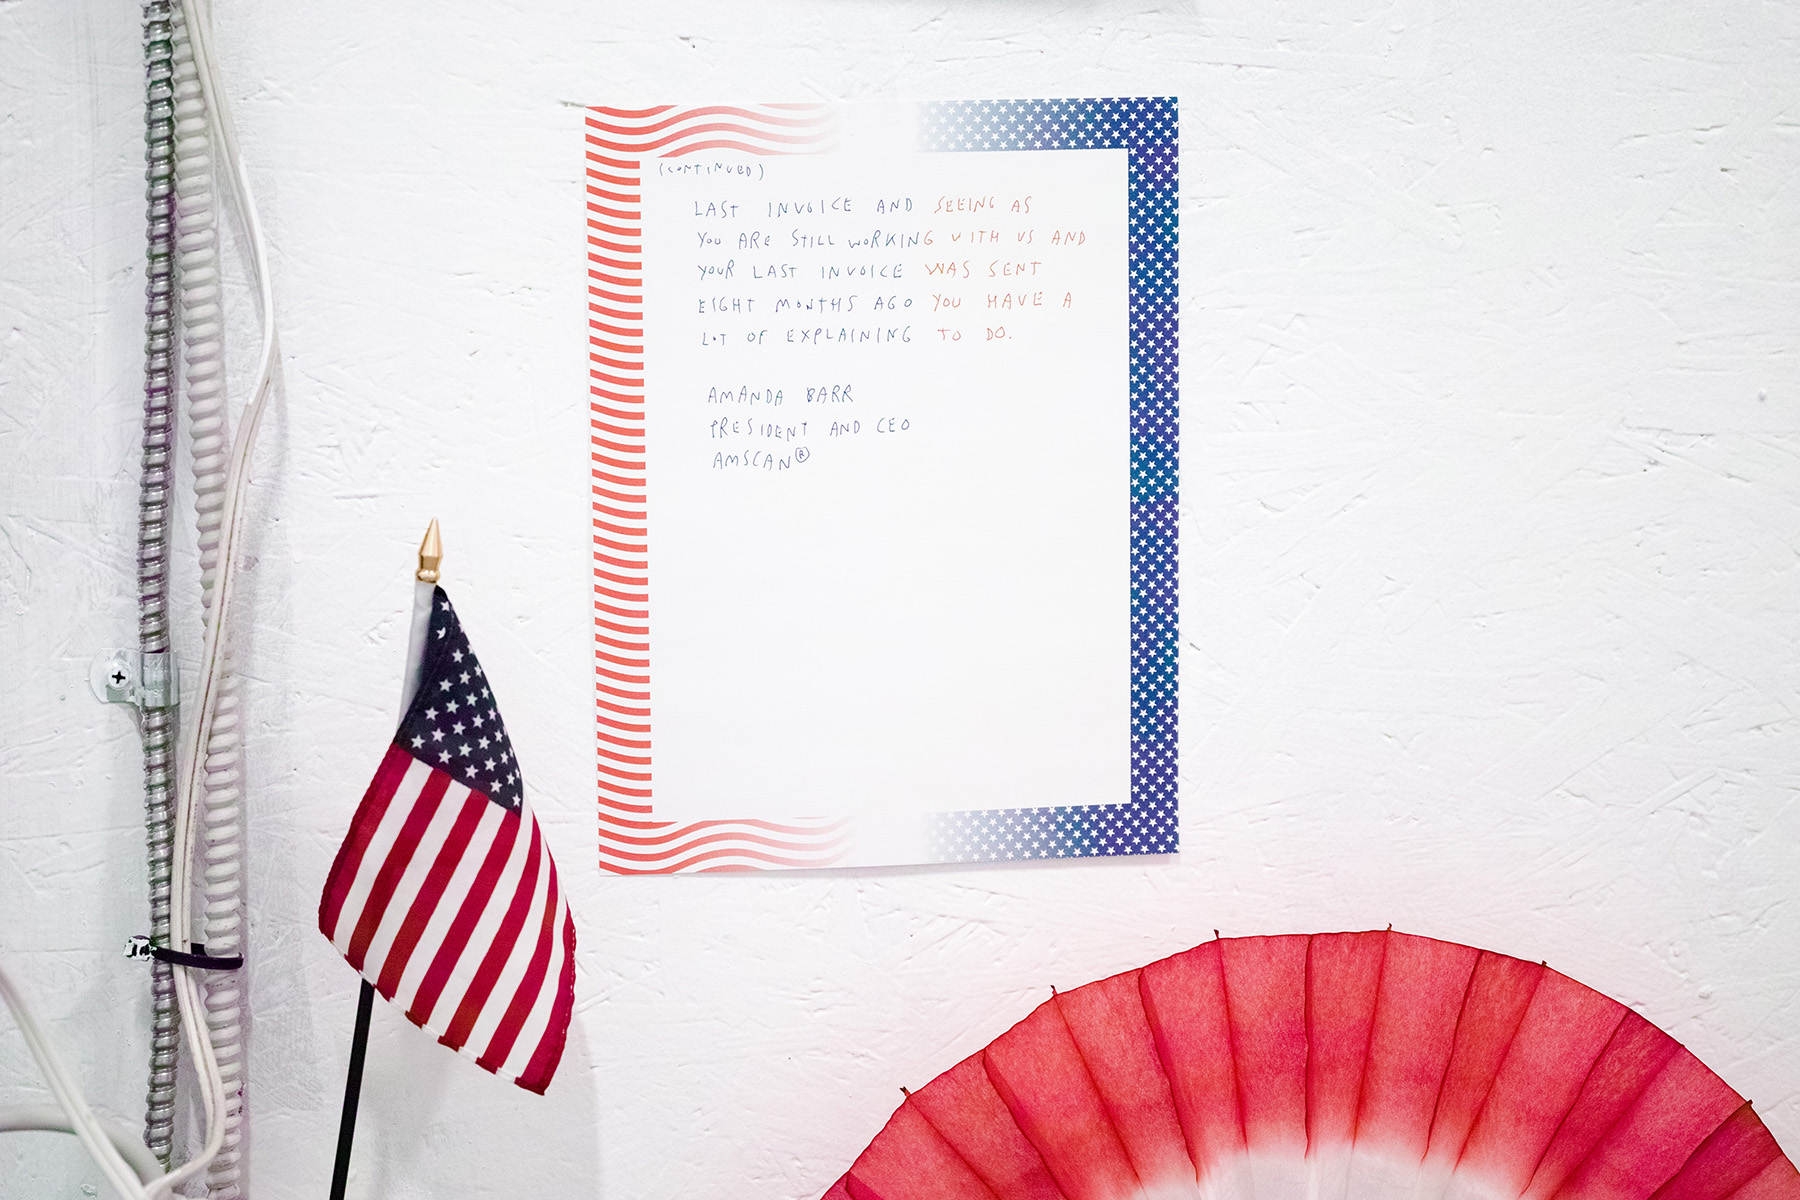 (CONTINUED)
LAST INVOICE AND SEEING AS
YOU ARE STILL WORKING WITH US AND
YOUR LAST INVOICE WAS SENT
EIGHT MONTHS AGO YOU HAVE A
LOT OF EXPLAINING TO DO.
AMANDA BARR
PRESIDENT AND CEO
AMSCAN®